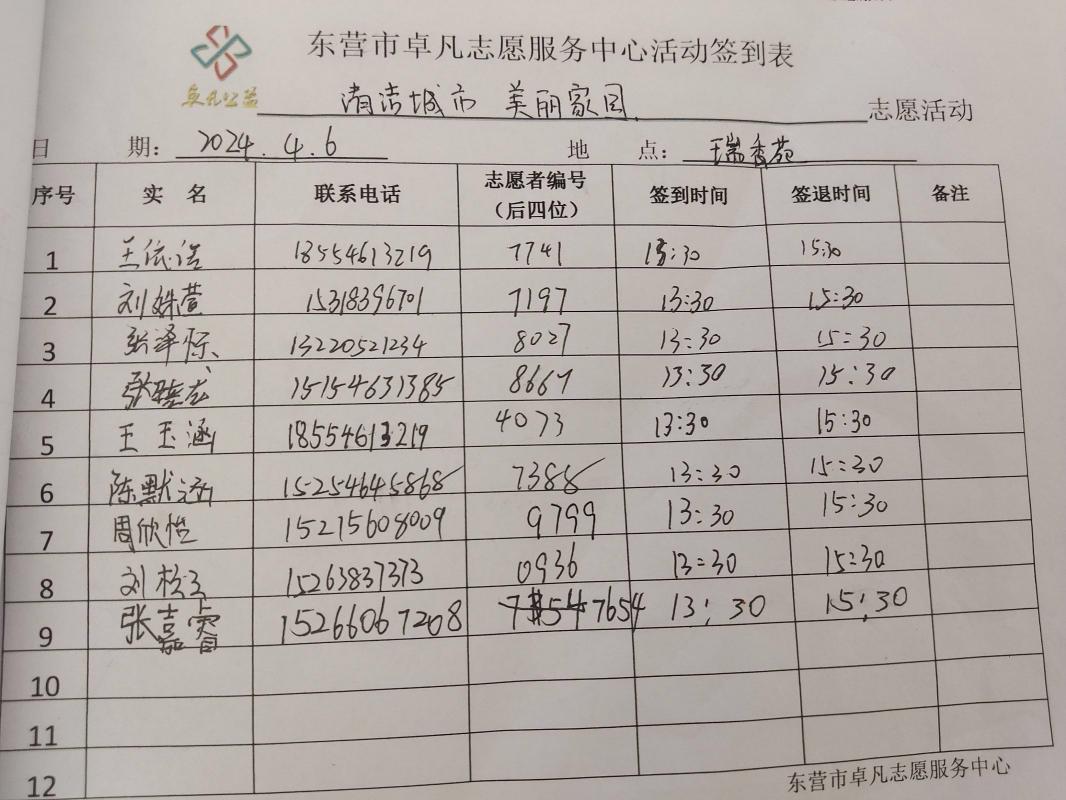 东营市卓凡志愿服务中心活动签到表
卓凡公益
清洁城市 美丽家园 志愿活动
日 期: 2024.4.6 地 点: 瑞香苑
序号 实 名 联系电话 志愿者编号（后四位） 签到时间 签退时间 备注
1 王依浩 18554613219 7741 13:30 15:30
2 刘姝萱 15318396701 7197 13:30 15:30
3 张泽 13220521234 8027 13:30 15:30
4 张 15154631385 8667 13:30 15:30
5 王玉涵 18554613219 4073 13:30 15:30
6 陈默涵 15254645868 7388 13:30 15:30
7 周欣怡 15215608009 9799 13:30 15:30
8 刘松 15263837373 0936 13:30 15:30
9 张嘉睿 15266067208 7654 13:30 15:30
10
11
12
东营市卓凡志愿服务中心